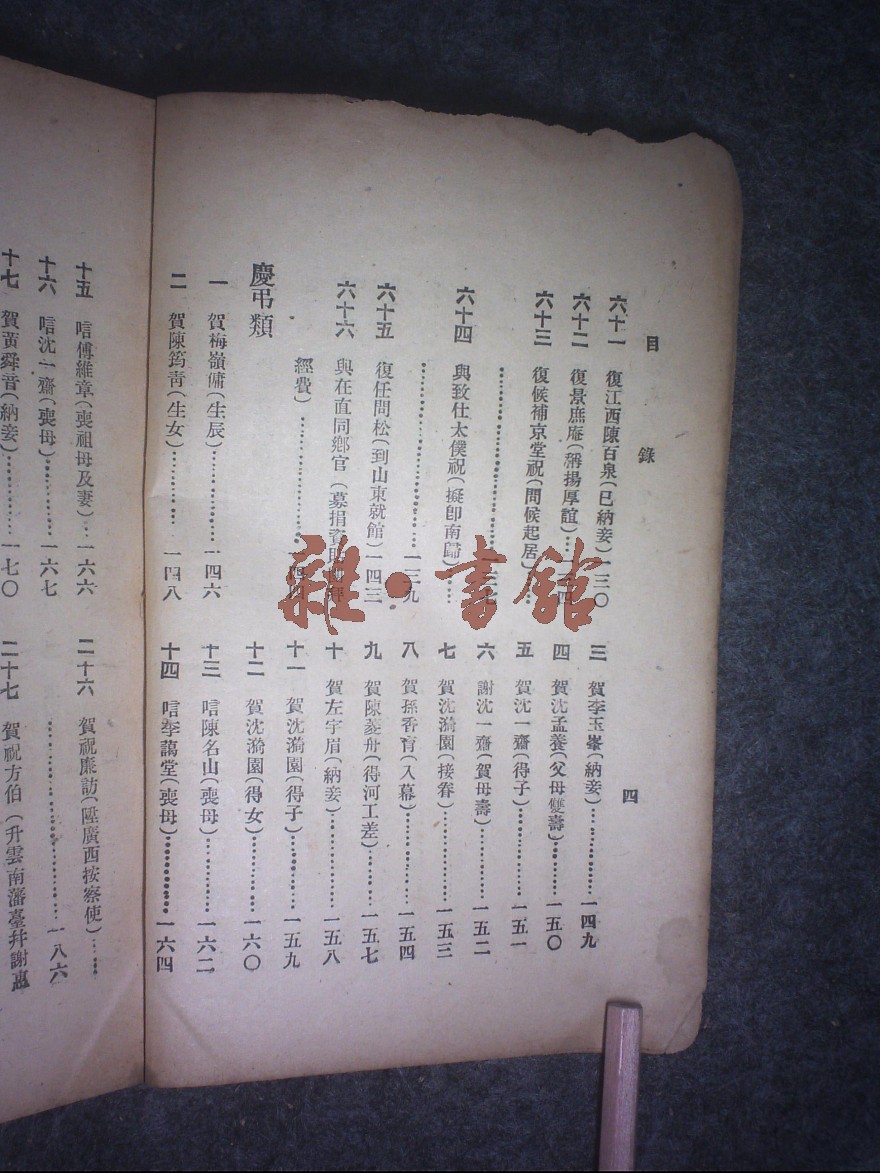 目錄 四
六十一 復江西陳百泉(已納妾)一三〇
六十二 復景庶庵(稱揚厚誼)…
六十三 復候補京堂祝(問候起居)…
六十四 與致仕太僕祝(擬卽南歸)……
……一三九
六十五 復任問松(到山東就館)一四三
六十六 與在直同鄕官(募捐
經費)……
慶弔類
一 賀梅嶺傭(生辰)……一四六
二 賀陳筠靑(生女)……一四八
三 賀李玉峯(納妾)……一四九
四 賀沈孟養(父母雙壽)……一五〇
五 賀沈一齋(得子)……一五一
六 謝沈一齋(賀母壽)……一五二
七 賀沈漪園(接眷)……一五三
八 賀孫香肓(入幕)……一五四
九 賀陳菱舟(得河工差)……一五七
十 賀左宇眉(納妾)……一五八
十一 賀沈漪園(得子)……一五九
十二 賀沈漪園(得女)……一六〇
十三 唁陳名山(喪母)……一六二
十四 唁李藹堂(喪母)……一六四
十五 唁傅維章(喪祖母及妻)…一六六
十六 唁沈一齋(喪母)……一六七
十七 賀黃舜音(納妾)……一七〇
二十六 賀祝廉訪(陞廣西按察使)……
……一八六
二十七 賀祝方伯(升雲南藩臺幷謝惠
雜·書館